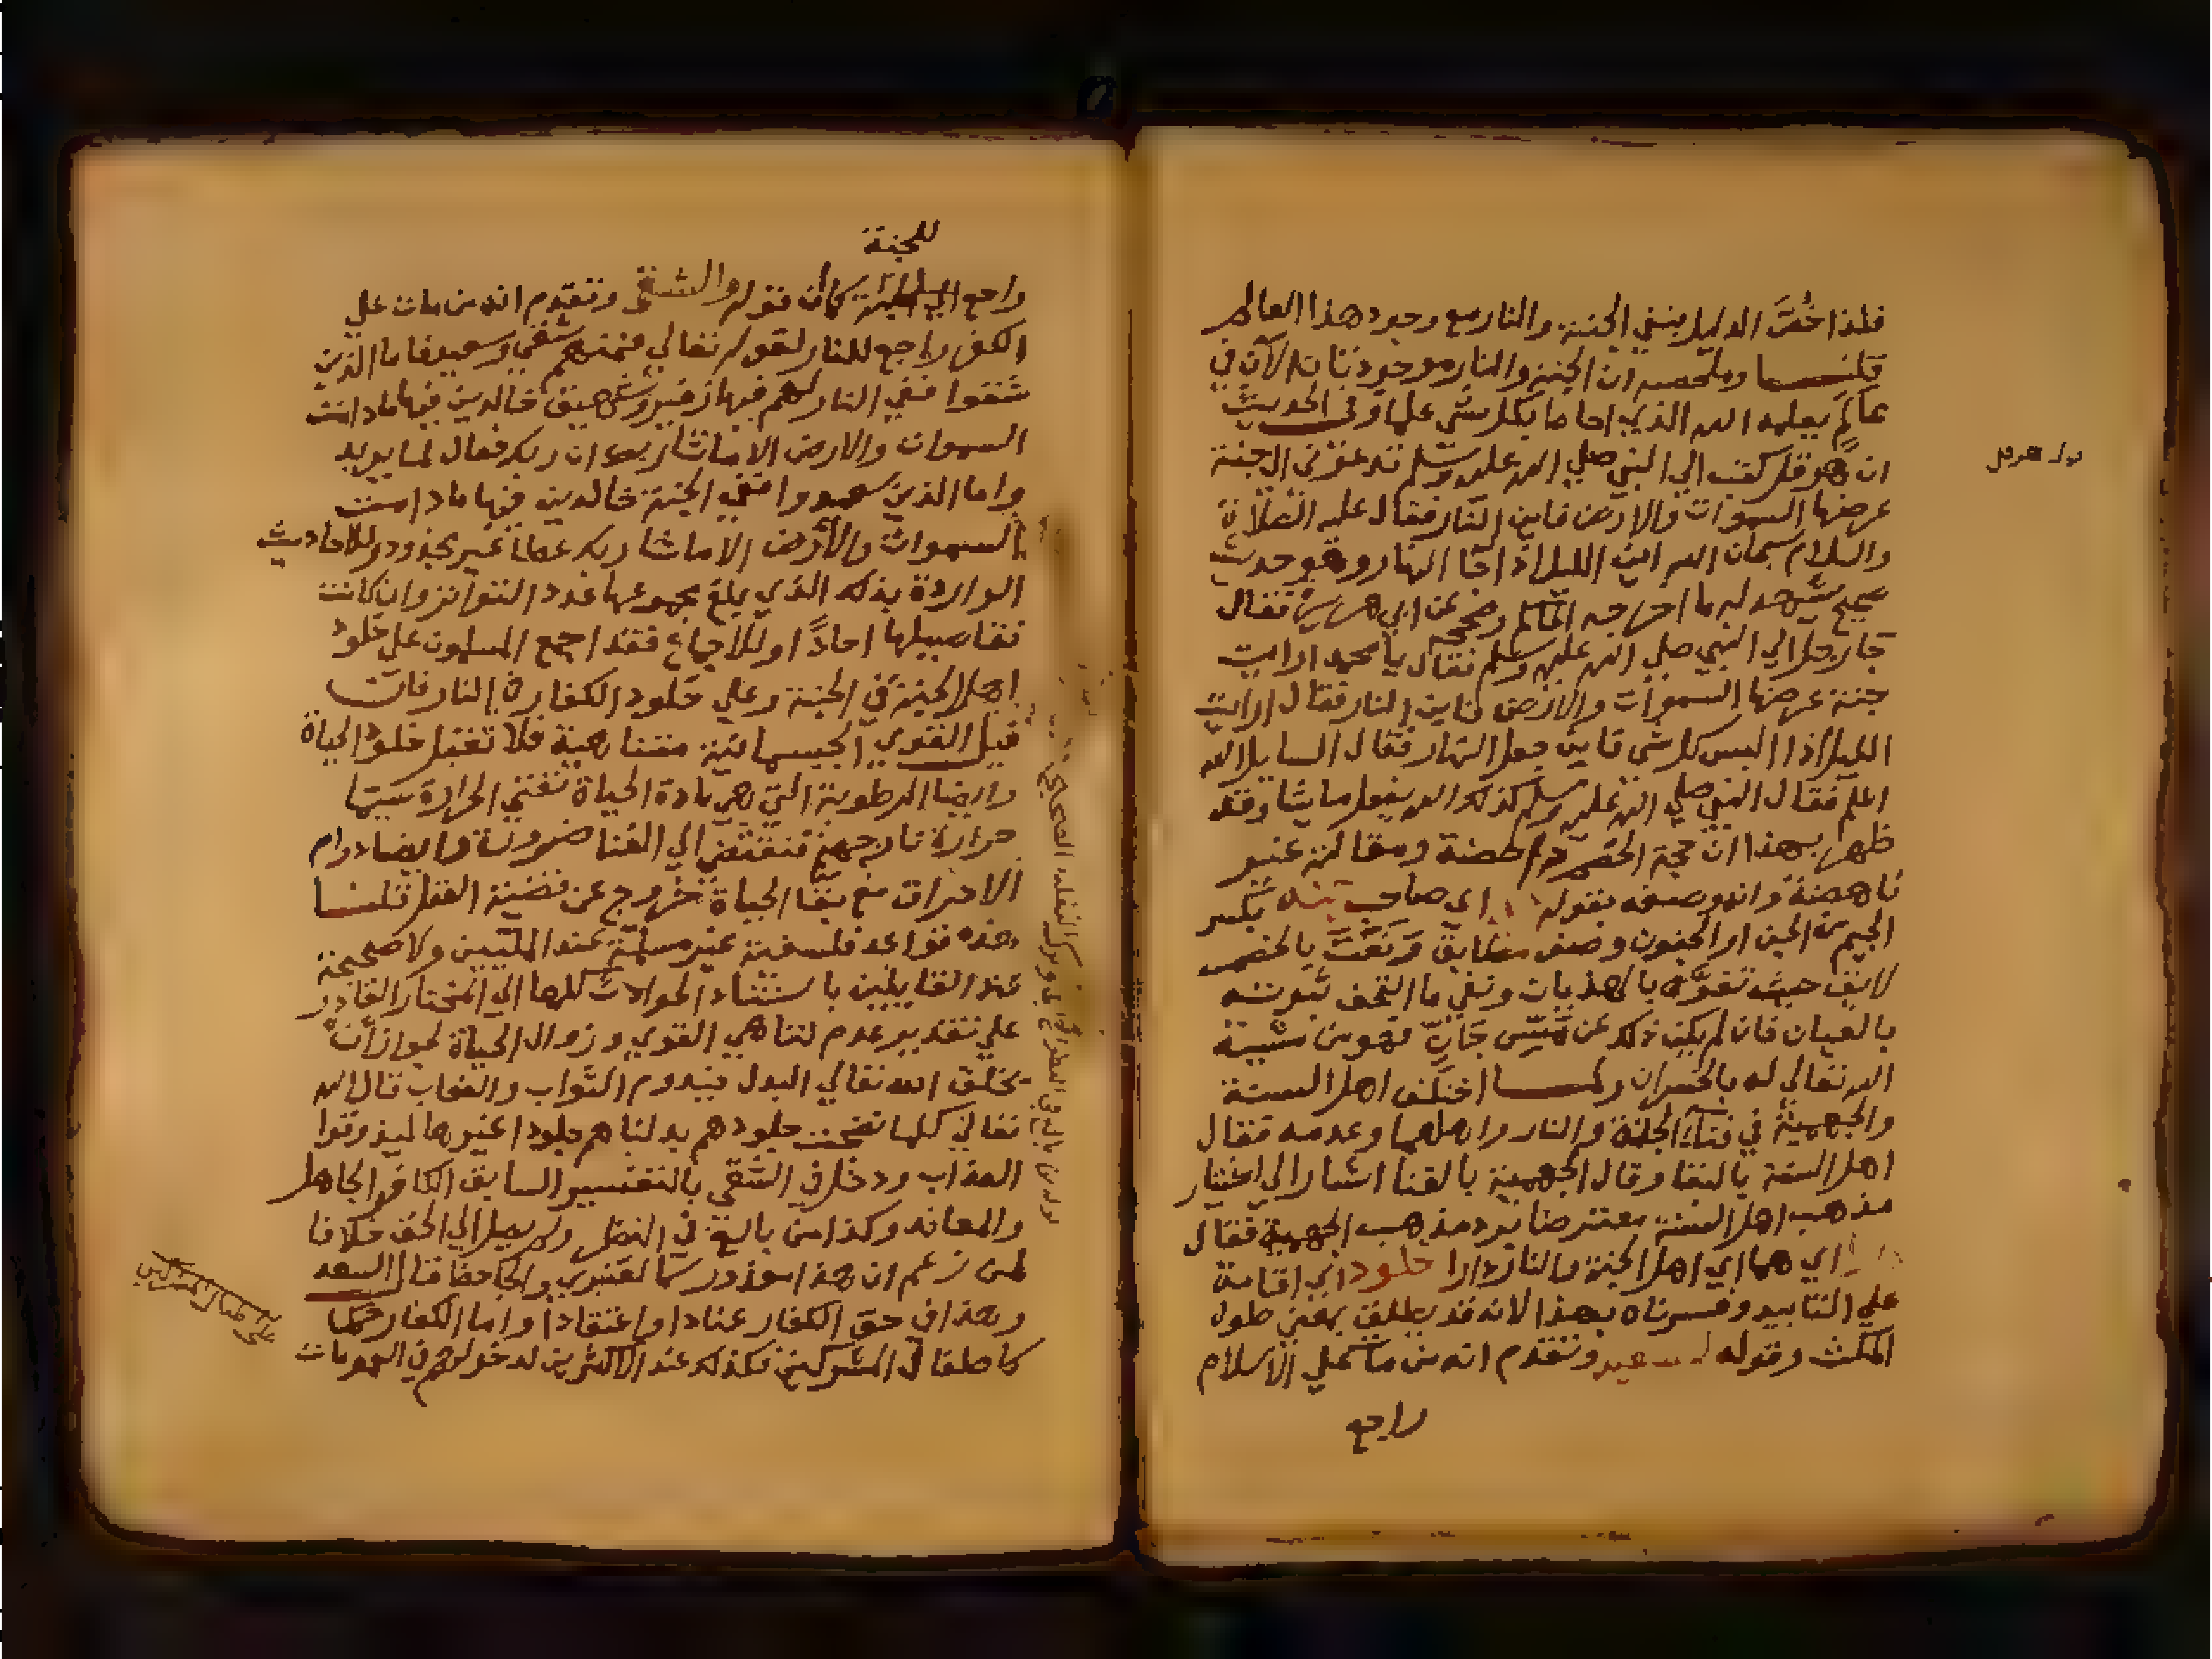 فلذا خُصَّ الدليل بنفي الجنة والنار مع وجود هذا العالم
قلنـــا وملخصه ان الجنة والنار موجودتان الآن في
عالَمٍ يعلمه الله الذي احاط بكل شي علما وفي الحديث
ان هرقل كتب الي النبي صلي الله عليه وسلم تدعوني الي جنة
عرضها السموات والارض فاين النار فقال عليه الصلاة
والسلام سبحان الله اين الليل اذا جا النهار وهو حديث
صحيح يشهد له ما اخرجه الحاكم وصححه عن ابي هريرة فقال
جا رجل الي النبي صلي الله عليه وسلم فقال يا محمد ارايت
جنة عرضها السموات والارض فاين النار فقال ارايت
الليل اذا البس كل شي فاين جعل النهار فقال السايل الله
اعلم فقال النبي صلي الله عليه وسلم كذلك الله يفعل ما يشا وقد
ظهر بهذا ان حجة الخصم داحضة ومقالته غير
ناهضة وانه وصفه بقوله اي صاحب جنه بكسر
الجيم من الجن او الجنون وصف مطابق ونَعْتٌ بالخصم
لايق حيث تفوَّه بالهذيان ونفي ما اتضح ثبوته
بالعيان فان لم يكن ذلك عن مَسِّ جَانٍّ فهو من مشيئة
الله تعالي له بالخسران ولمـــا اختلف اهل السنة
والجهمية في فناء الجنة والنار واهلهما وعدمه فقال
اهل السنة بالبقا وقال الجهمية بالفنا اشار الي اختيار
مذهب اهل السنة معترضا برد مذهب الجهمية فقال
اي هما اي اهل الجنة والنار دارا خلود اي اقامة
علي التابيد وفسرناه بهذا لانه قد يطلق بمعني طول
المكث وقوله لسعيد وتقدم انه من مات علي الاسلام
راجع
للجنة
راجع كان قوله والشقي وتقدم انه من مات علي
الكفر راجع للنار لقوله تعالي فمنهم شقي وسعيد فاما الذين
شقوا ففي النار لهم فيها زفير وشهيق خالدين فيها ما دامت
السموات والارض الا ما شا ربك ان ربك فعال لما يريد
واما الذين سعدوا ففي الجنة خالدين فيها ما دامت
السموات والأرض الا ما شا ربك عطاء غير مجذوذ وللاحاديث
الواردة بذلك الذي يبلغ مجموعها عدد التواتر وان كانت
تفاصيلها احادًا وللاجماع فقد اجمع المسلمون علي خلود
اهل الجنة في الجنة وعلي خلود الكفار في النار فان
قيل القوي الجسمانية متناهية فلا تقبل خلود الحياة
وايضا الرطوبة التي هي مادة الحياة تفني الحرارة سيما
حرارة نار جهنم فتفضي الي الفنا ضرورة وايضا دوام
الاحراق مع بقا الحياة خروج عن قضية العقل قلنـــا
هذه قواعد فلسفية غير مسلمة عند المليين ولا صحيحة
عند القايلين باستناد الحوادث كلها الي المختار القادر
علي تقدير عدم تناهي القوي وزوال الحياة لجواز أنْ
يخلق الله تعالي البدل فيدوم الثواب والعقاب قال الله
تعالي كلما نضجت جلودهم بدلناهم جلودا غيرها ليذوقوا
العذاب ودخل في الشقي بالتفسير السابق الكافر الجاهل
والمعاند وكذا من بالغ في النظر ولم يصل الي الحق خلافا
لمن زعم ان هذا معذور كالعنبري والجاحظ قال السعد
وهذا في حق الكفار عنادا واعتقادا واما الكفار حكما
كاطفال المشركين فكذلك عند الاكثرين لدخولهم في العمومات